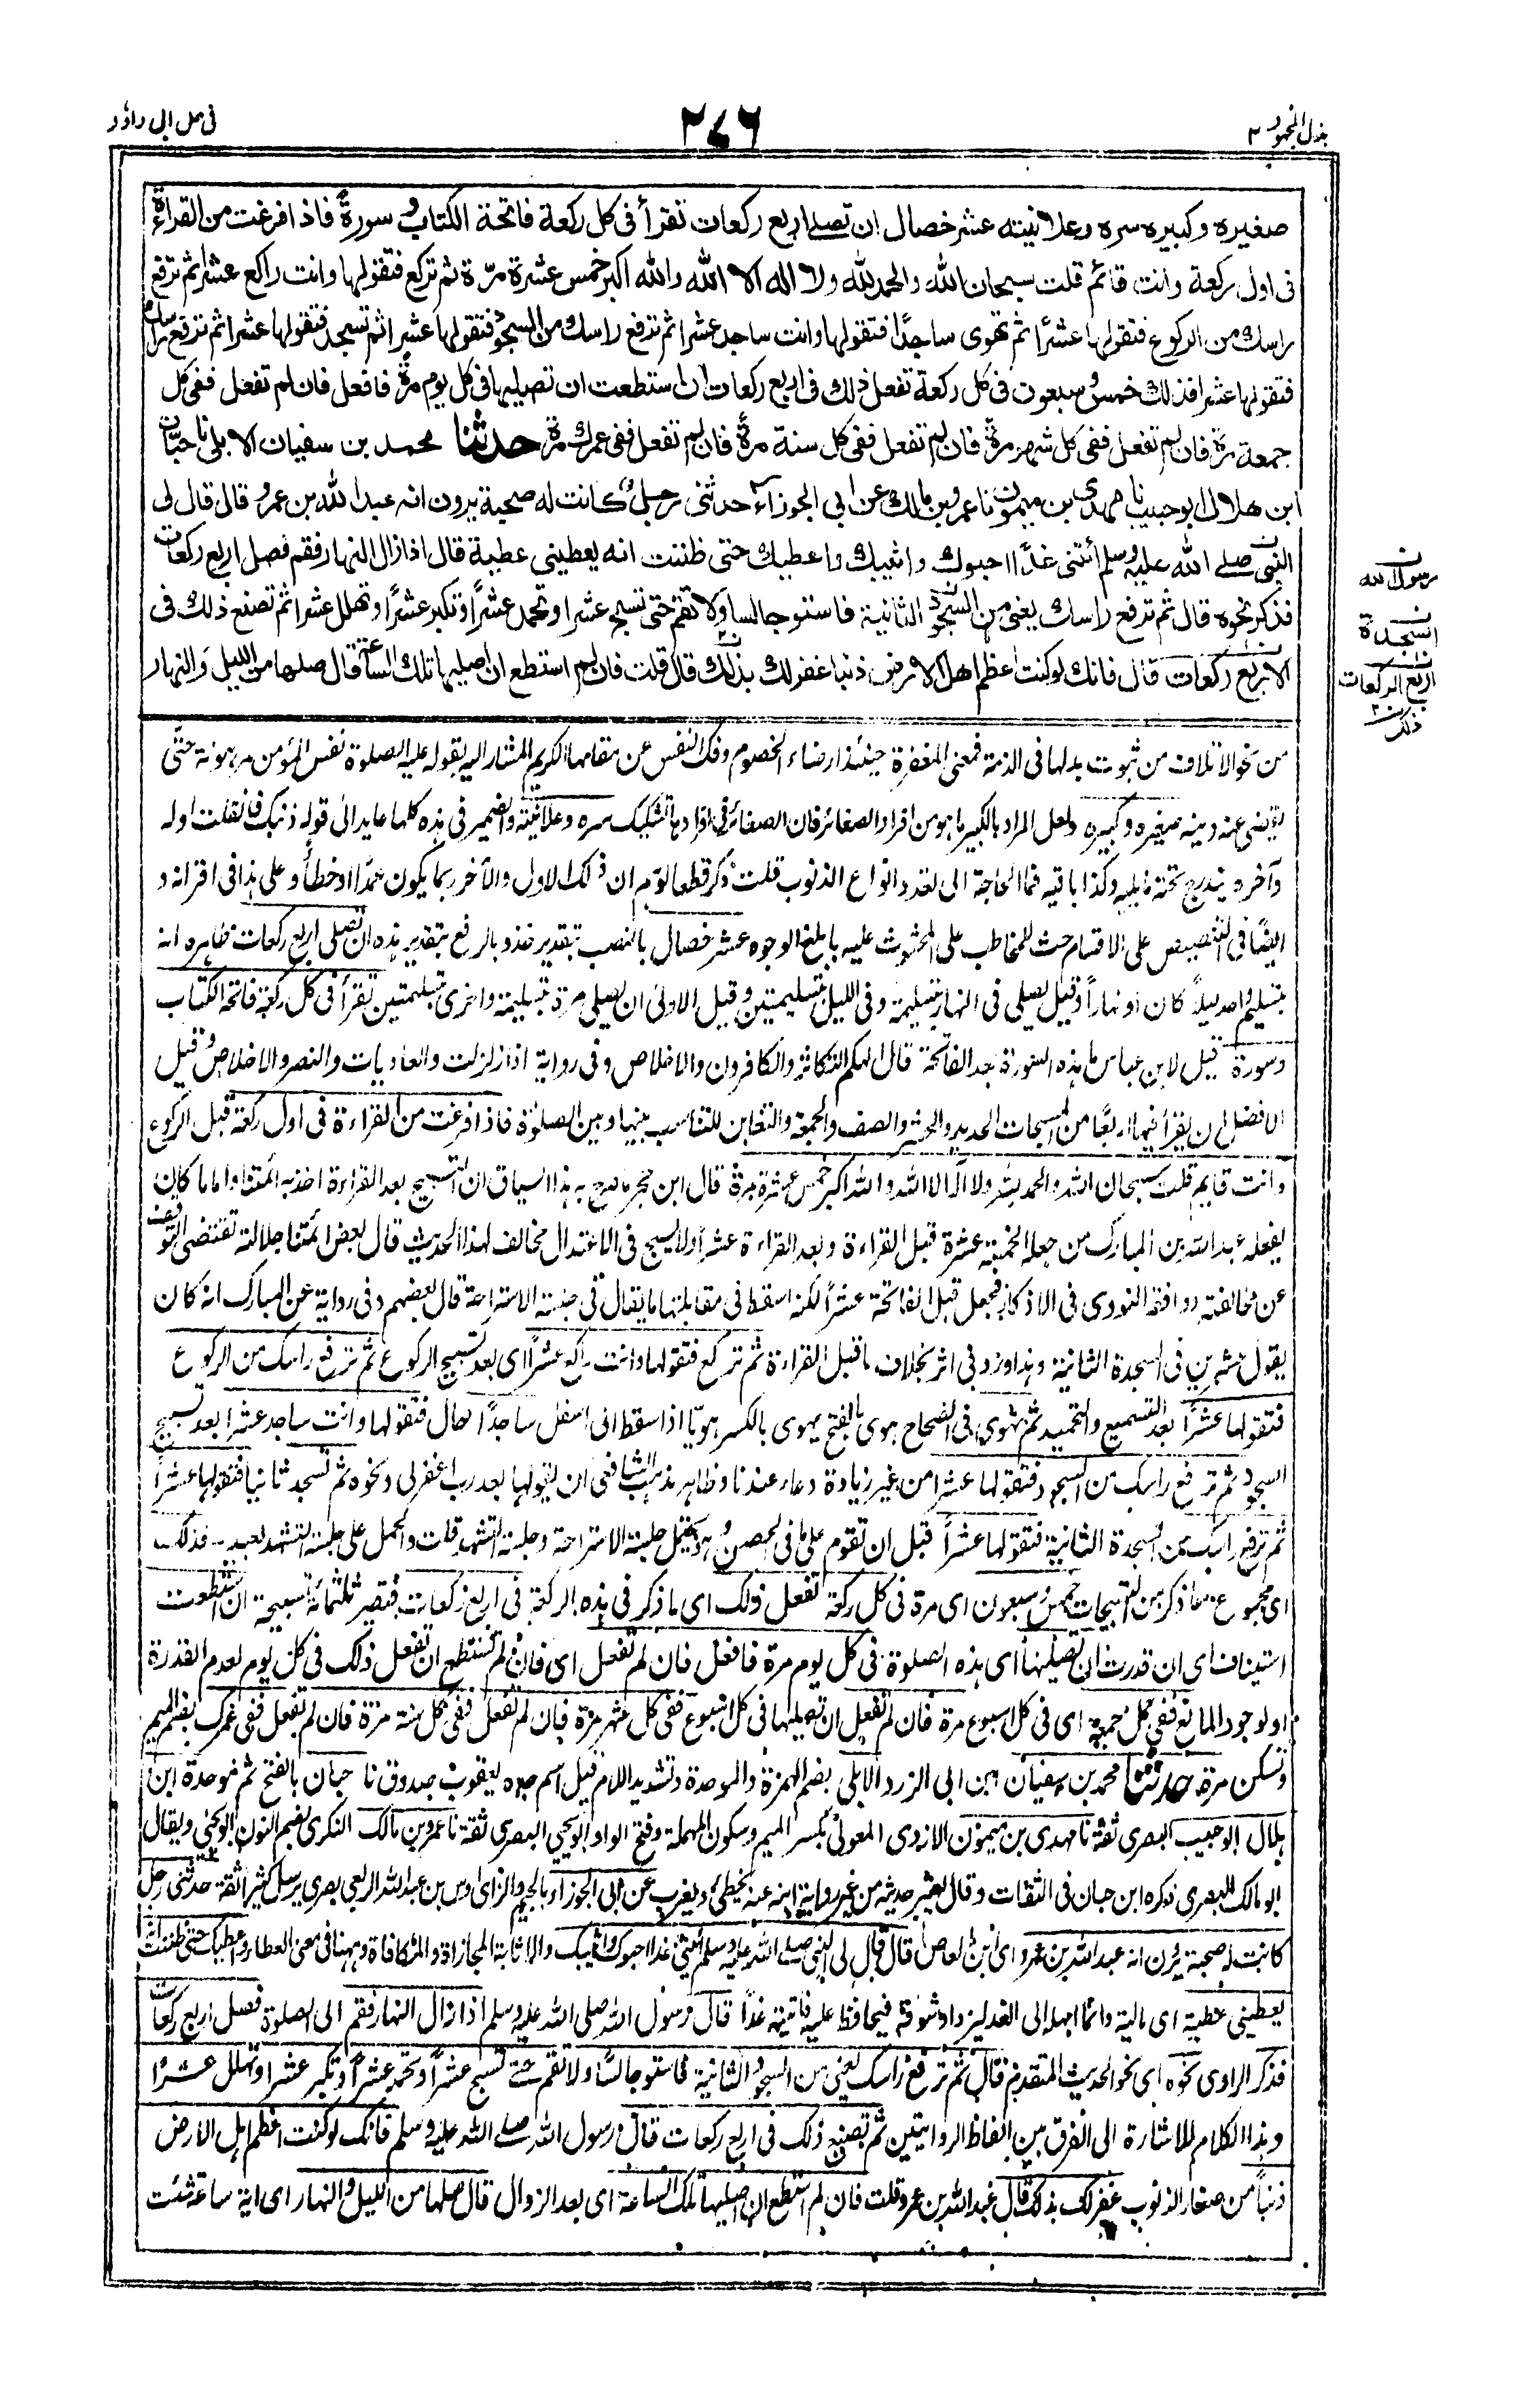 بذل المجهود ٢
٢٧٦
فى حل ابى داؤد
صغيره وكبيره سره وعلانيته عشر خصال ان تصلے اربع ركعات تقرأ فى كل ركعة فاتحة الكتاب و سورة فاذا فرغت من القراءة
فى اول ركعة وانت قائم قلت سبحان الله والحمد لله ولا اله الا الله والله اكبر خمس عشرة مرّة ثم تركع فتقولها وانت راكع عشرا ثم ترفع
راسك من الركوع فتقولها عشرًا ثم تهوى ساجدًا فتقولها وانت ساجد عشرا ثم ترفع راسك من السجود فتقولها عشرا ثم تسجد فتقولها عشرا ثم ترفع راسك
فتقولها عشرا فذلك خمس و سبعون فى كل ركعة تفعل ذلك فى اربع ركعات ان استطعت ان تصليها فى كل يوم مرة فافعل فان لم تفعل ففى كل
جمعة مرة فان لم تفعل ففى كل شهر مرة فان لم تفعل ففى كل سنة مرة فان لم تفعل ففى عمرك مرة حدثنا محمد بن سفيان الابلى نا حبّان
ابن هلال ابو حبيب نا مهدى بن ميمون نا عمرو بن مالك عن ابى الجوزاء حدثنى رجل كانت له صحبة يرون انه عبد الله بن عمرو قال قال لى
النبى صلے الله عليه وسلم ائتنى غدًا احبوك واثيبك واعطيك حتى ظننت انه يعطينى عطية قال اذا زال النهار فقم فصل اربع ركعات
فذكر نحوه قال ثم ترفع راسك يعنى من السجود الثانية فاستو جالسا ولا تقم حتى تسبح عشرا وتحمد عشرًا وتكبر عشرًا وتهلل عشرا ثم تصنع ذلك فى
الاربع ركعات قال فانك لو كنت اعظم اهل الارض ذنبا غفر لك بذلك قال قلت فان لم استطع ان اصليها تلك الساعة قال صلها من الليل والنهار
رسول الله
السجدة
اربع الركعات
ذلك
من نحو الاتلاف من ثبوت بدلها فى الذمة فمعنى المغفرة حينئذ ارضاء الخصوم وفك النفس عن مقامها الكريم المشار اليه بقوله عليه الصلوة نفس المؤمن مرهونة حتى
يقضى عنه دينه صغيره وكبيره ولعل المراد بالكبير ما هو من افراد الصغائر فان الصغائر فى افرادها تشكيك سره وعلانيته والضمير فى هذه كلها عايد الى قوله ذنبك فان قلت اوله
وآخره يندرج تحته ما يليه وكذا باقيه فما الحاجة الى تعدد انواع الذنوب قلت ذكر قطعا لوهم ان ذلك الاول والآخر ربما يكون عمدًا او خطأ و على هذا فى اقرانه و
ايضًا فى التنصيص على الاقسام حث للمخاطب على المحثوث عليه بابلغ الوجوه عشر خصال بالنصب بتقدير خذ و بالرفع بتقدير هذه ان تصلى اربع ركعات ظاهره انه
بتسليم واحد ليلاً كان او نهاراً و قيل يصلى فى النهار بتسليمة و فى الليل بتسليمتين و قيل الاولى ان يصلى مرة بتسليمة واخرى بتسليمتين تقرأ فى كل ركعة فاتحة الكتاب
وسورة قيل لابن عباس ما هذه السورة بعد الفاتحة قال الهكم التكاثر والكافرون والاخلاص و فى رواية اذا زلزلت والعاديات والنصر والاخلاص و قيل
الافضل ان يقرأ فيها اربعًا من المسبحات الحديد والحشر والصف والجمعة والتغابن للتناسب بينها وبين الصلوة فاذا فرغت من القراءة فى اول ركعة قبل الركوع
وانت قايم قلت سبحان الله والحمد لله ولا اله الا الله والله اكبر خمس عشرة مرة قال ابن حجر ما صرح به هذا السياق ان التسبيح بعد القراءة اخذ به ائمتنا واما ما كان
يفعله عبد الله بن المبارك من جعله الخمسة عشرة قبل القراءة و بعد القراءة عشرًا ولا يسبح فى الاعتدال مخالف لهذا الحديث قال بعض ائمتنا جلالته تقتضى التوقف
عن مخالفته ووافقه النووى فى الاذكار فجعل قبل الفاتحة عشراً لكنه اسقط فى مقابلتها ما يقال فى جلسة الاستراحة قال بعضهم و فى رواية عن المبارك انه كان
يقول عشرين فى السجدة الثانية وهذا ورد فى اثر بخلاف ما قبل القراءة ثم تركع فتقولها وانت راكع عشرًا اى بعد تسبيح الركوع ثم ترفع راسك من الركوع
فتقولها عشرًا بعد التسميع والتحميد ثم تهوى فى الصحاح هوى بالفتح يهوى بالكسر هويّا اذا سقط الى اسفل ساجدًا حال فتقولها وانت ساجد عشرا بعد تسبيح
السجود ثم ترفع راسك من السجود فتقولها عشرا من غير زيادة دعاء عندنا وظاهر مذهب الشافعى ان يقولها بعد رب اغفر لى و نحوه ثم تسجد ثانيا فتقولها عشراً
ثم ترفع راسك من السجدة الثانية فتقولها عشراً قبل ان تقوم على ما فى الحصن و هو يحتمل جلسة الاستراحة وجلسة التشهد قلت والحمل على جلسة التشهد بعيد فذلك
اى مجموع ما ذكر من التسبيحات خمس وسبعون اى مرة فى كل ركعة تفعل ذلك اى ما ذكر فى هذه الركعة فى اربع ركعات فتصير ثلثمائة تسبيحة ان استطعت
استيناف اى ان قدرت ان تصليها اى هذه الصلوة فى كل يوم مرة فافعل فان لم تفعل اى فان لم تستطع ان تفعل ذلك فى كل يوم لعدم القدرة
او لوجود المانع ففى كل جمعة اى فى كل اسبوع مرة فان لم تفعل ان تصليها فى كل اسبوع ففى كل شهر مرة فان لم تفعل ففى كل سنة مرة فان لم تفعل ففى عمرك بضم الميم
وتسكن مرة حدثنا محمد بن سفيان بن ابى الزرد الابلى بضم الهمزة والموحدة وتشديد اللام قيل اسم جده يعقوب صدوق نا حبان بالفتح ثم موحدة ابن
هلال ابو حبيب البصرى ثقة نا مهدى بن ميمون الازدى المعولى بكسر الميم وسكون المهملة وفتح الواو ابو يحيى البصرى ثقة نا عمرو بن مالك النكرى بضم النون ابو يحيى ويقال
ابو مالك البصرى ذكره ابن حبان فى الثقات وقال يعتبر حديثه من غير رواية ابنه عنه يخطئ ويغرب عن ابى الجوزاء بالجيم والزاى اوس بن عبد الله الربعى بصرى يرسل كثيرا ثقة حدثنى رجل
كانت له صحبة يرون انه عبد الله بن عمرو اى ابن العاص قال قال لى النبى صلے الله عليه وسلم ائتنى غدا احبوك واثيبك والاثابة المجازاة والمكافاة وههنا فى معنى العطاء واعطيك حتى ظننت انه
يعطينى عطية اى مالية وانما امهله الى الغد ليزداد شوقه فيحافظ عليه فاتيته غدًا قال رسول الله صلى الله عليه وسلم اذا زال النهار فقم الى الصلوة فصل اربع ركعات
فذكر الراوى نحوه اى نحو الحديث المتقدم قال ثم ترفع راسك يعنى من السجود الثانية فاستو جالسًا ولا تقم حتے تسبح عشراً وتحمد عشراً وتكبر عشرا وتهلل عشرًا
وهذا الكلام للاشارة الى الفرق بين الفاظ الروايتين ثم تصنع ذلك فى اربع ركعات قال رسول الله صلے الله عليه وسلم فانك لو كنت اعظم اهل الارض
ذنباً من صغار الذنوب غفر لك بذلك قال عبد الله بن عمرو قلت فان لم استطع ان اصليها تلك الساعة اى بعد الزوال قال صلها من الليل والنهار اى اية ساعة شئت